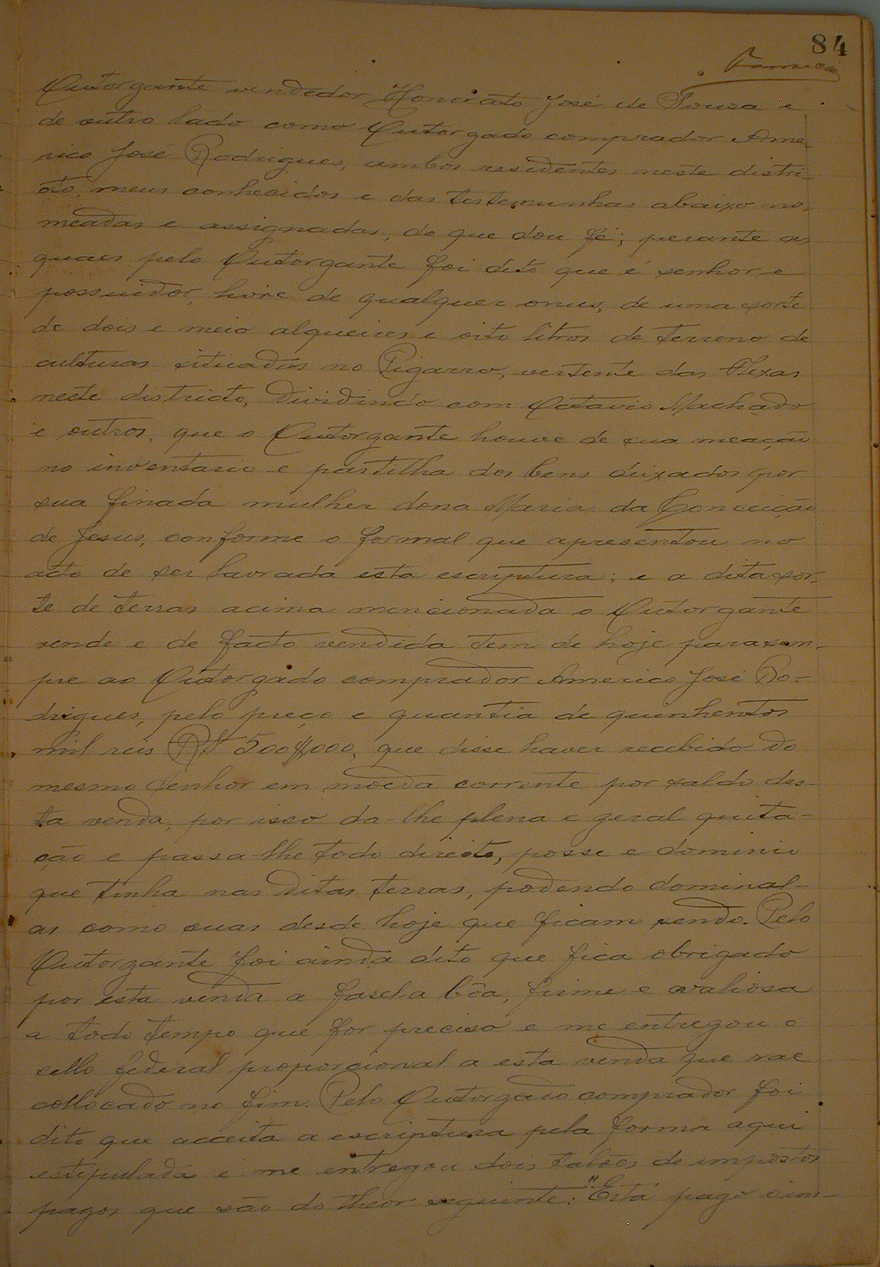 84
Outorgante vendedor Honorato José de Souza e
de outro lado como Outorgado comprador Ame-
rico José Rodrigues, ambos residentes neste distri-
cto, meus conhecidos e das testemunhas abaixo no-
meadas e assignadas, do que dou fé; perante as
quaes pelo Outorgante foi dito que é senhor e
possuidor, livre de qualquer onus, de uma sorte
de dois e meio alqueires e oito litros de terreno de
culturas situadas no Pigarro, vertente das
neste districto, dividindo com Octavio Machado
e outros, que o Outorgante houve de sua meação
no inventario e partilha dos bens deixados por
sua finada mulher dona Maria da Conceição
de Jesus, conforme o formal que apresentou no
acto de ser lavrada esta escriptura; e a dita sor-
te de terras acima mencionada o Outorgante
vende e de facto vendida tem de hoje para sem-
pre ao Outorgado comprador Americo José Ro-
drigues, pelo preço e quantia de quinhentos
mil reis Rs 500$000, que disse haver recebido do
mesmo Senhor em moeda corrente por saldo des-
ta venda, por isso da-lhe plena e geral quita-
ção e passa-lhe todo direito, posse e dominio
que tinha nas ditas terras, podendo dominal-
as como suas desde hoje que ficam sendo. Pelo
Outorgante foi ainda dito que fica obrigado
por esta venda a fasel-a bôa, firme e valiosa
a todo tempo que for preciso e me entregou o
sello federal proporcional a esta venda que vae
collocado no fim. Pelo Outorgado comprador foi
dito que acceita a escriptura pela forma aqui
estipulada e me entregou dois talões de impostos
pagos que são do theor seguinte: "Está pago cim-